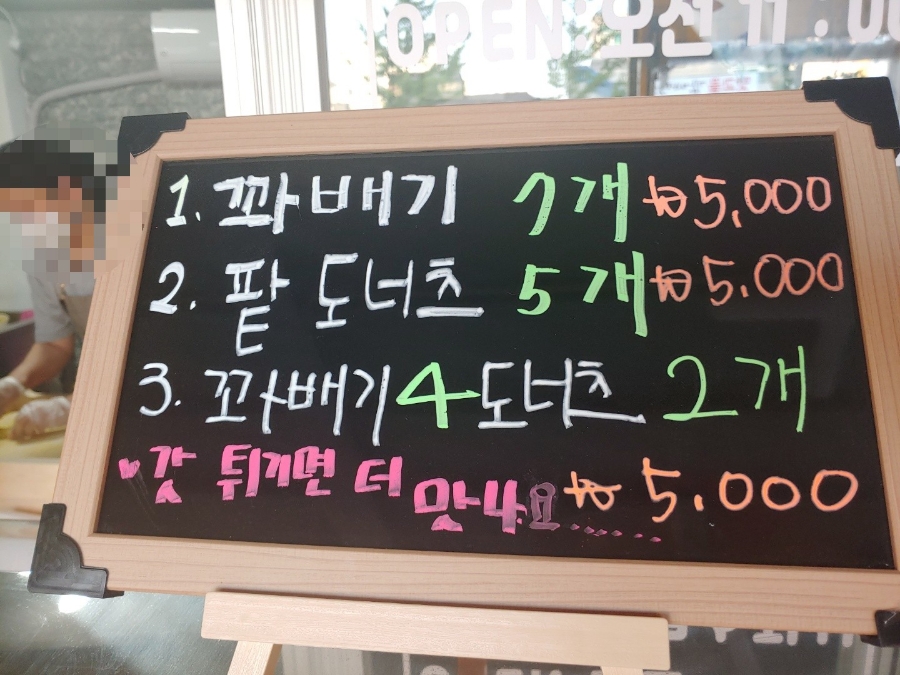 OPEN:오전 11:00
1. 꽈배기 7개 ₩5,000
2. 팥 도너츠 5개 ₩5,000
3. 꽈배기4도너츠 2개
♥갓 튀기면 더 맛나요...... ₩5.000